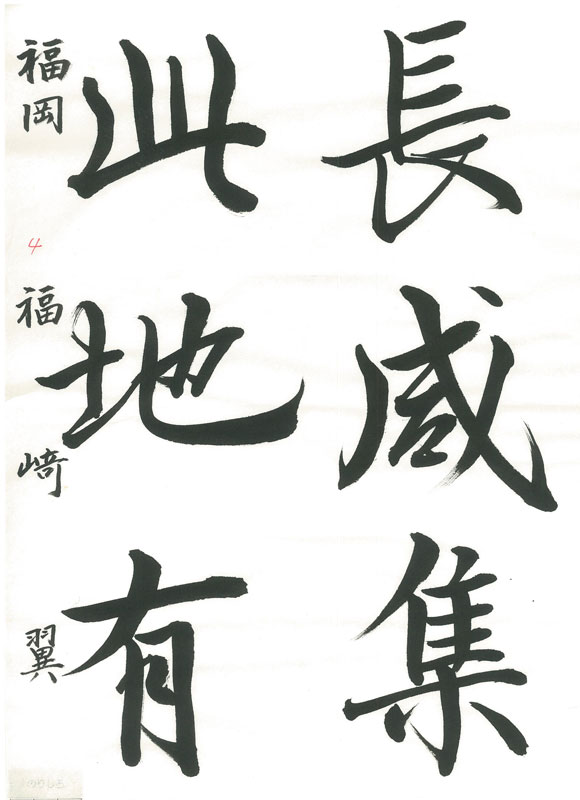 長咸集
此地有
福岡
4
福﨑
翼